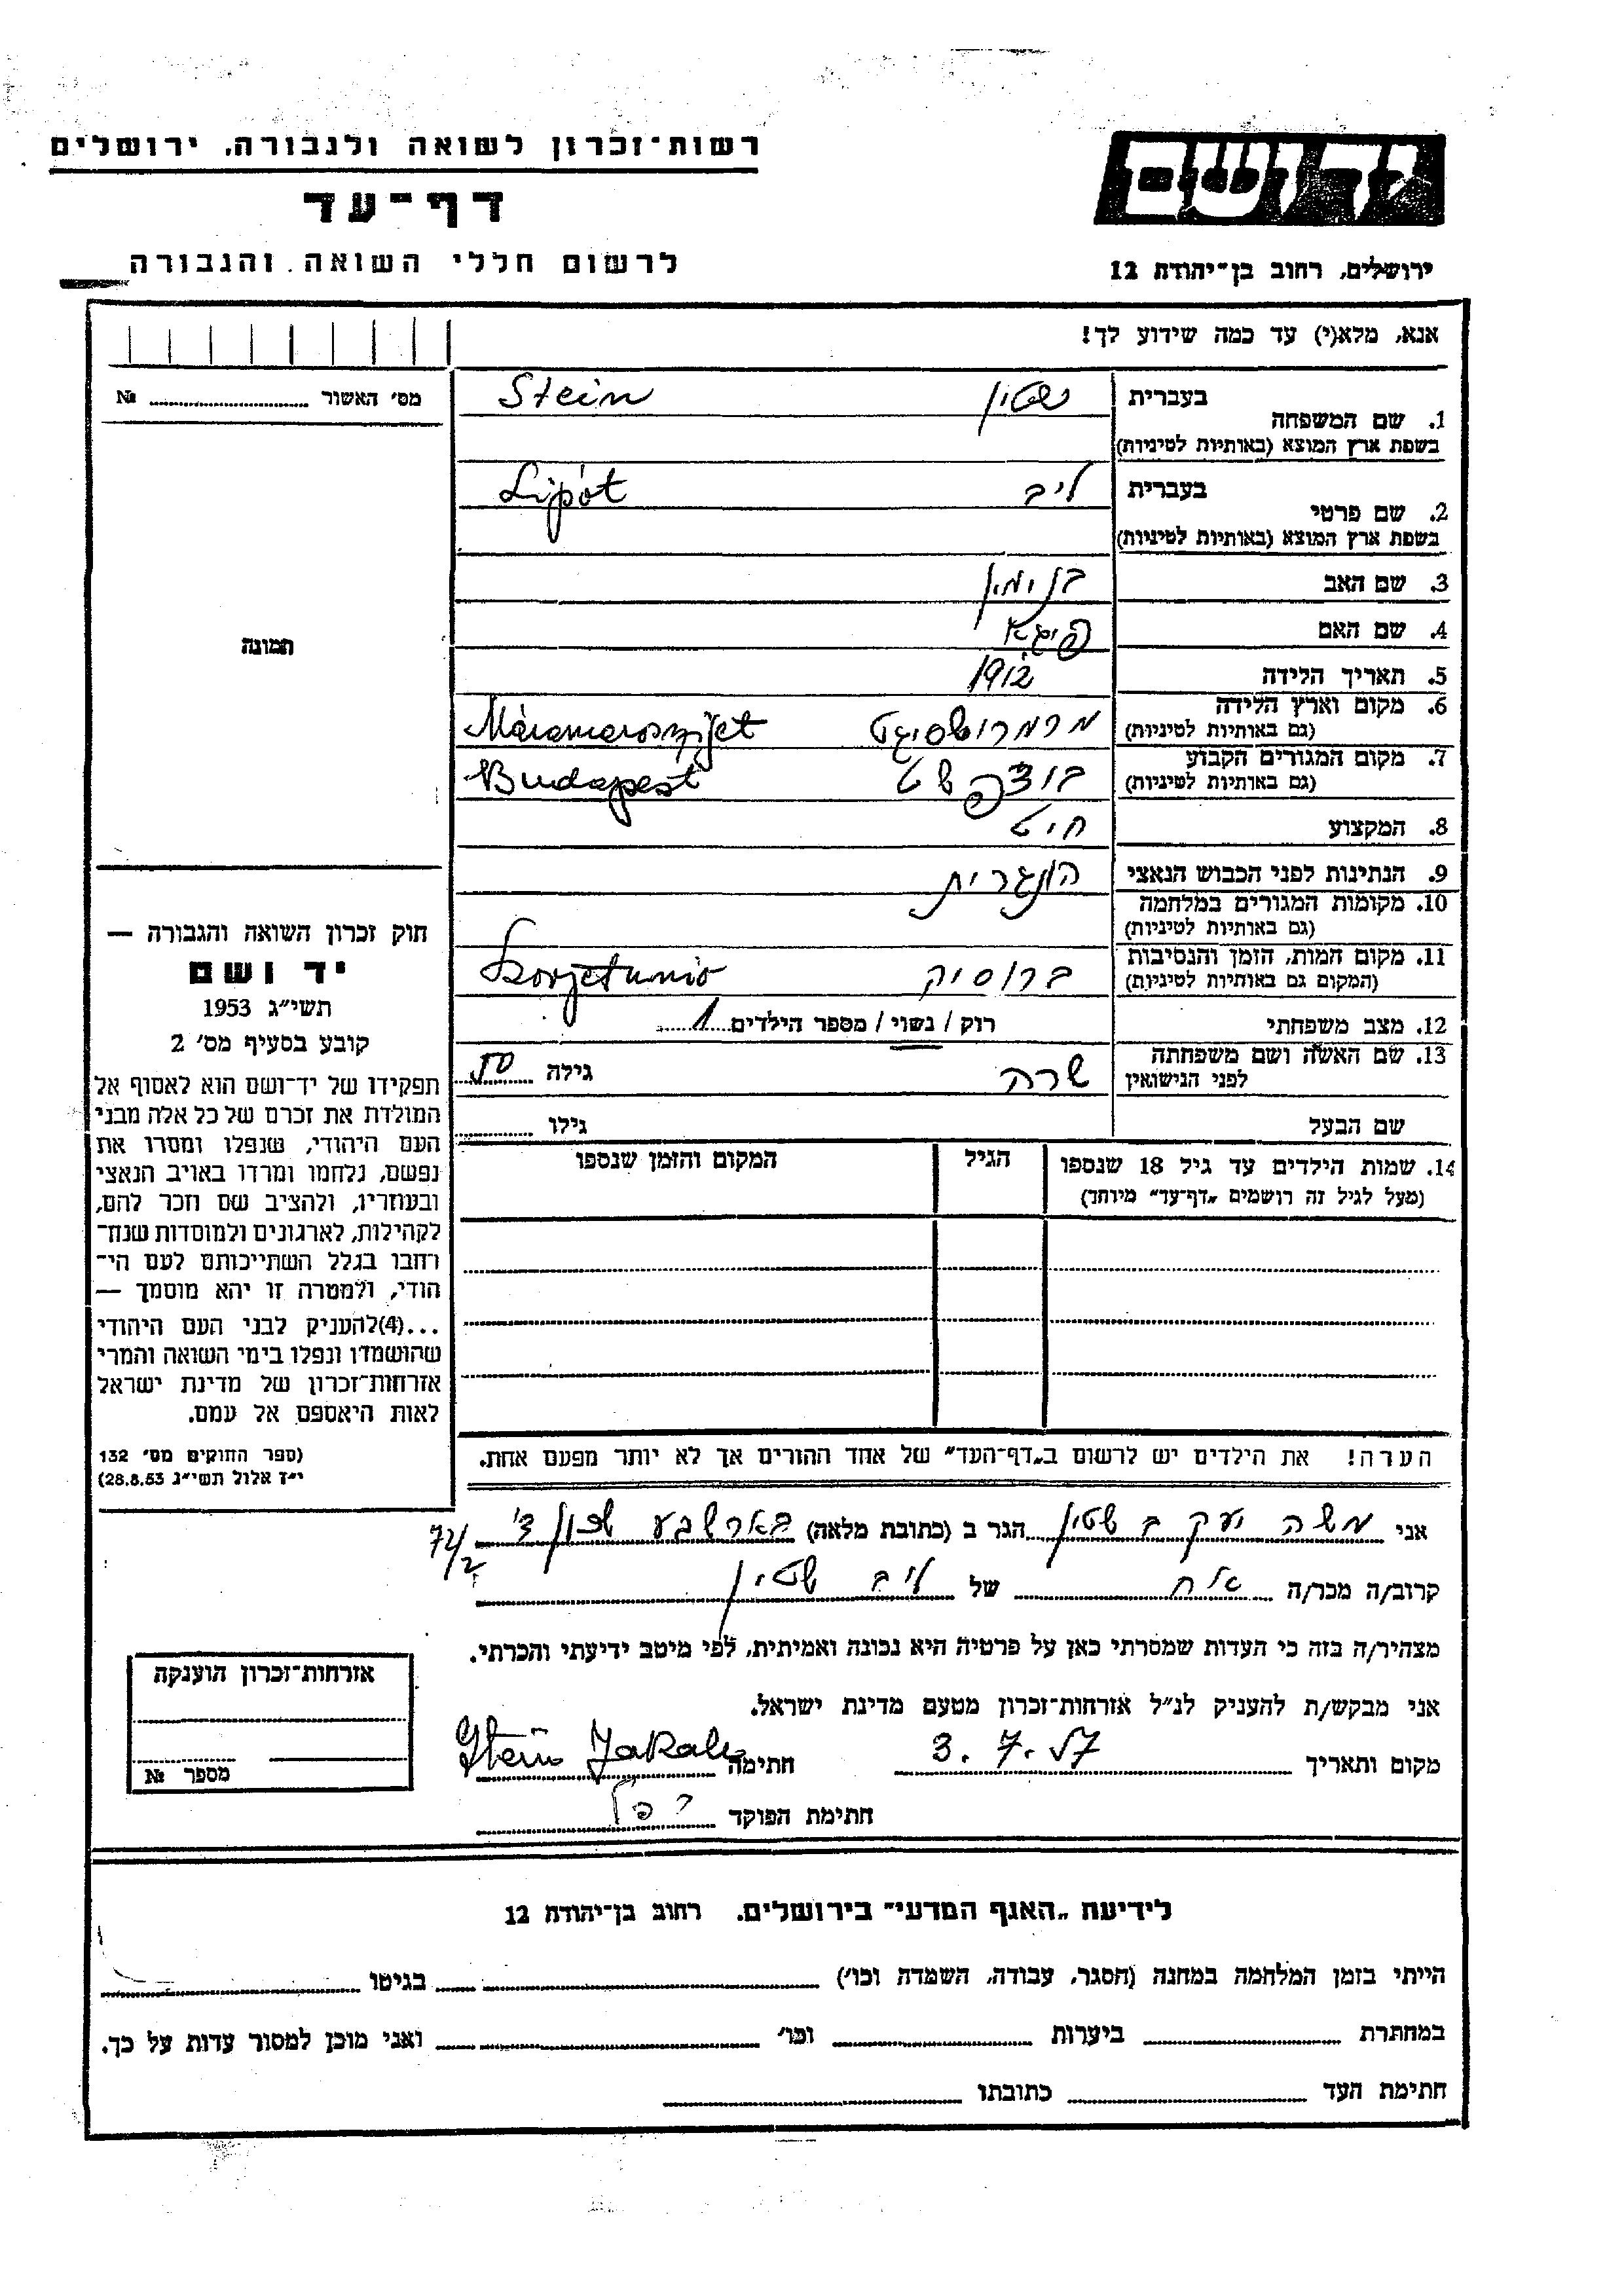 רשות־זכרון לשואה ולגבורה, ירושלים
דף־עד
לרשום חללי השואה והגבורה
יד ושם
ירושלים, רחוב בן־יהודה 12
אנא, מלא(י) עד כמה שידוע לך!
מס׳ האשור № ........
תמונה
1. שם המשפחה בעברית שטין Stein
בשפת ארץ המוצא (באותיות לטיניות)
2. שם פרטי בעברית ליב Lipót
בשפת ארץ המוצא (באותיות לטיניות)
3. שם האב בנימין
4. שם האם פיגא
5. תאריך הלידה 1912
6. מקום וארץ הלידה מרמרושסיגט Máramaroszijet
(גם באותיות לטיניות)
7. מקום המגורים הקבוע Budapest
(גם באותיות לטיניות)
8. המקצוע חיט
9. הנתינות לפני הכבוש הנאצי הונגרית
10. מקומות המגורים במלחמה
(גם באותיות לטיניות)
11. מקום המות, הזמן והנסיבות ברוסיה Szovjetunió
(המקום גם באותיות לטיניות)
12. מצב משפחתי רוק / נשוי / מספר הילדים 1
13. שם האשה ושם משפחתה לפני הנישואין שרה גילה
שם הבעל גילו
14. שמות הילדים עד גיל 18 שנספו הגיל המקום והזמן שנספו
(מעל לגיל זה רושמים „דף־עד” מיוחד)
הערה! את הילדים יש לרשום ב„דף־העד” של אחד ההורים אך לא יותר מפעם אחת.
חוק זכרון השואה והגבורה —
יד ושם
תשי״ג 1953
קובע בסעיף מס׳ 2
תפקידו של יד־ושם הוא לאסוף אל
המולדת את זכרם של כל אלה מבני
העם היהודי, שנפלו ומסרו את
נפשם, נלחמו ומרדו באויב הנאצי
ובעוזריו, ולהציב שם וזכר להם,
לקהילות, לארגונים ולמוסדות שנח־
רבו בגלל השתייכותם לעם הי־
הודי, ולמטרה זו יהא מוסמך —
...(4)להעניק לבני העם היהודי
שהושמדו ונפלו בימי השואה והמרי
אזרחות־זכרון של מדינת ישראל
לאות היאספם אל עמם.
(ספר החוקים מס׳ 132
י״ז אלול תשי״ג 28.8.53)
אני משה יעקב שטין הגר ב (כתובת מלאה) בארשבע שכון ד׳ 72/2
קרוב/ה מכר/ה אח של ליב שטין
מצהיר/ה בזה כי העדות שמסרתי כאן על פרטיה היא נכונה ואמיתית, לפי מיטב ידיעתי והכרתי.
אני מבקש/ת להעניק לנ״ל אזרחות־זכרון מטעם מדינת ישראל.
מקום ותאריך 3. 7. 57 חתימה Stein Jakab
חתימת הפוקד
אזרחות־זכרון הוענקה
מספר №
לידיעת „האגף המדעי” בירושלים, רחוב בן־יהודה 12
הייתי בזמן המלחמה במחנה (הסגר, עבודה, השמדה וכו׳) בגיטו
במחתרת ביערות וכו׳ ואני מוכן למסור עדות על כך.
חתימת העד כתובתו